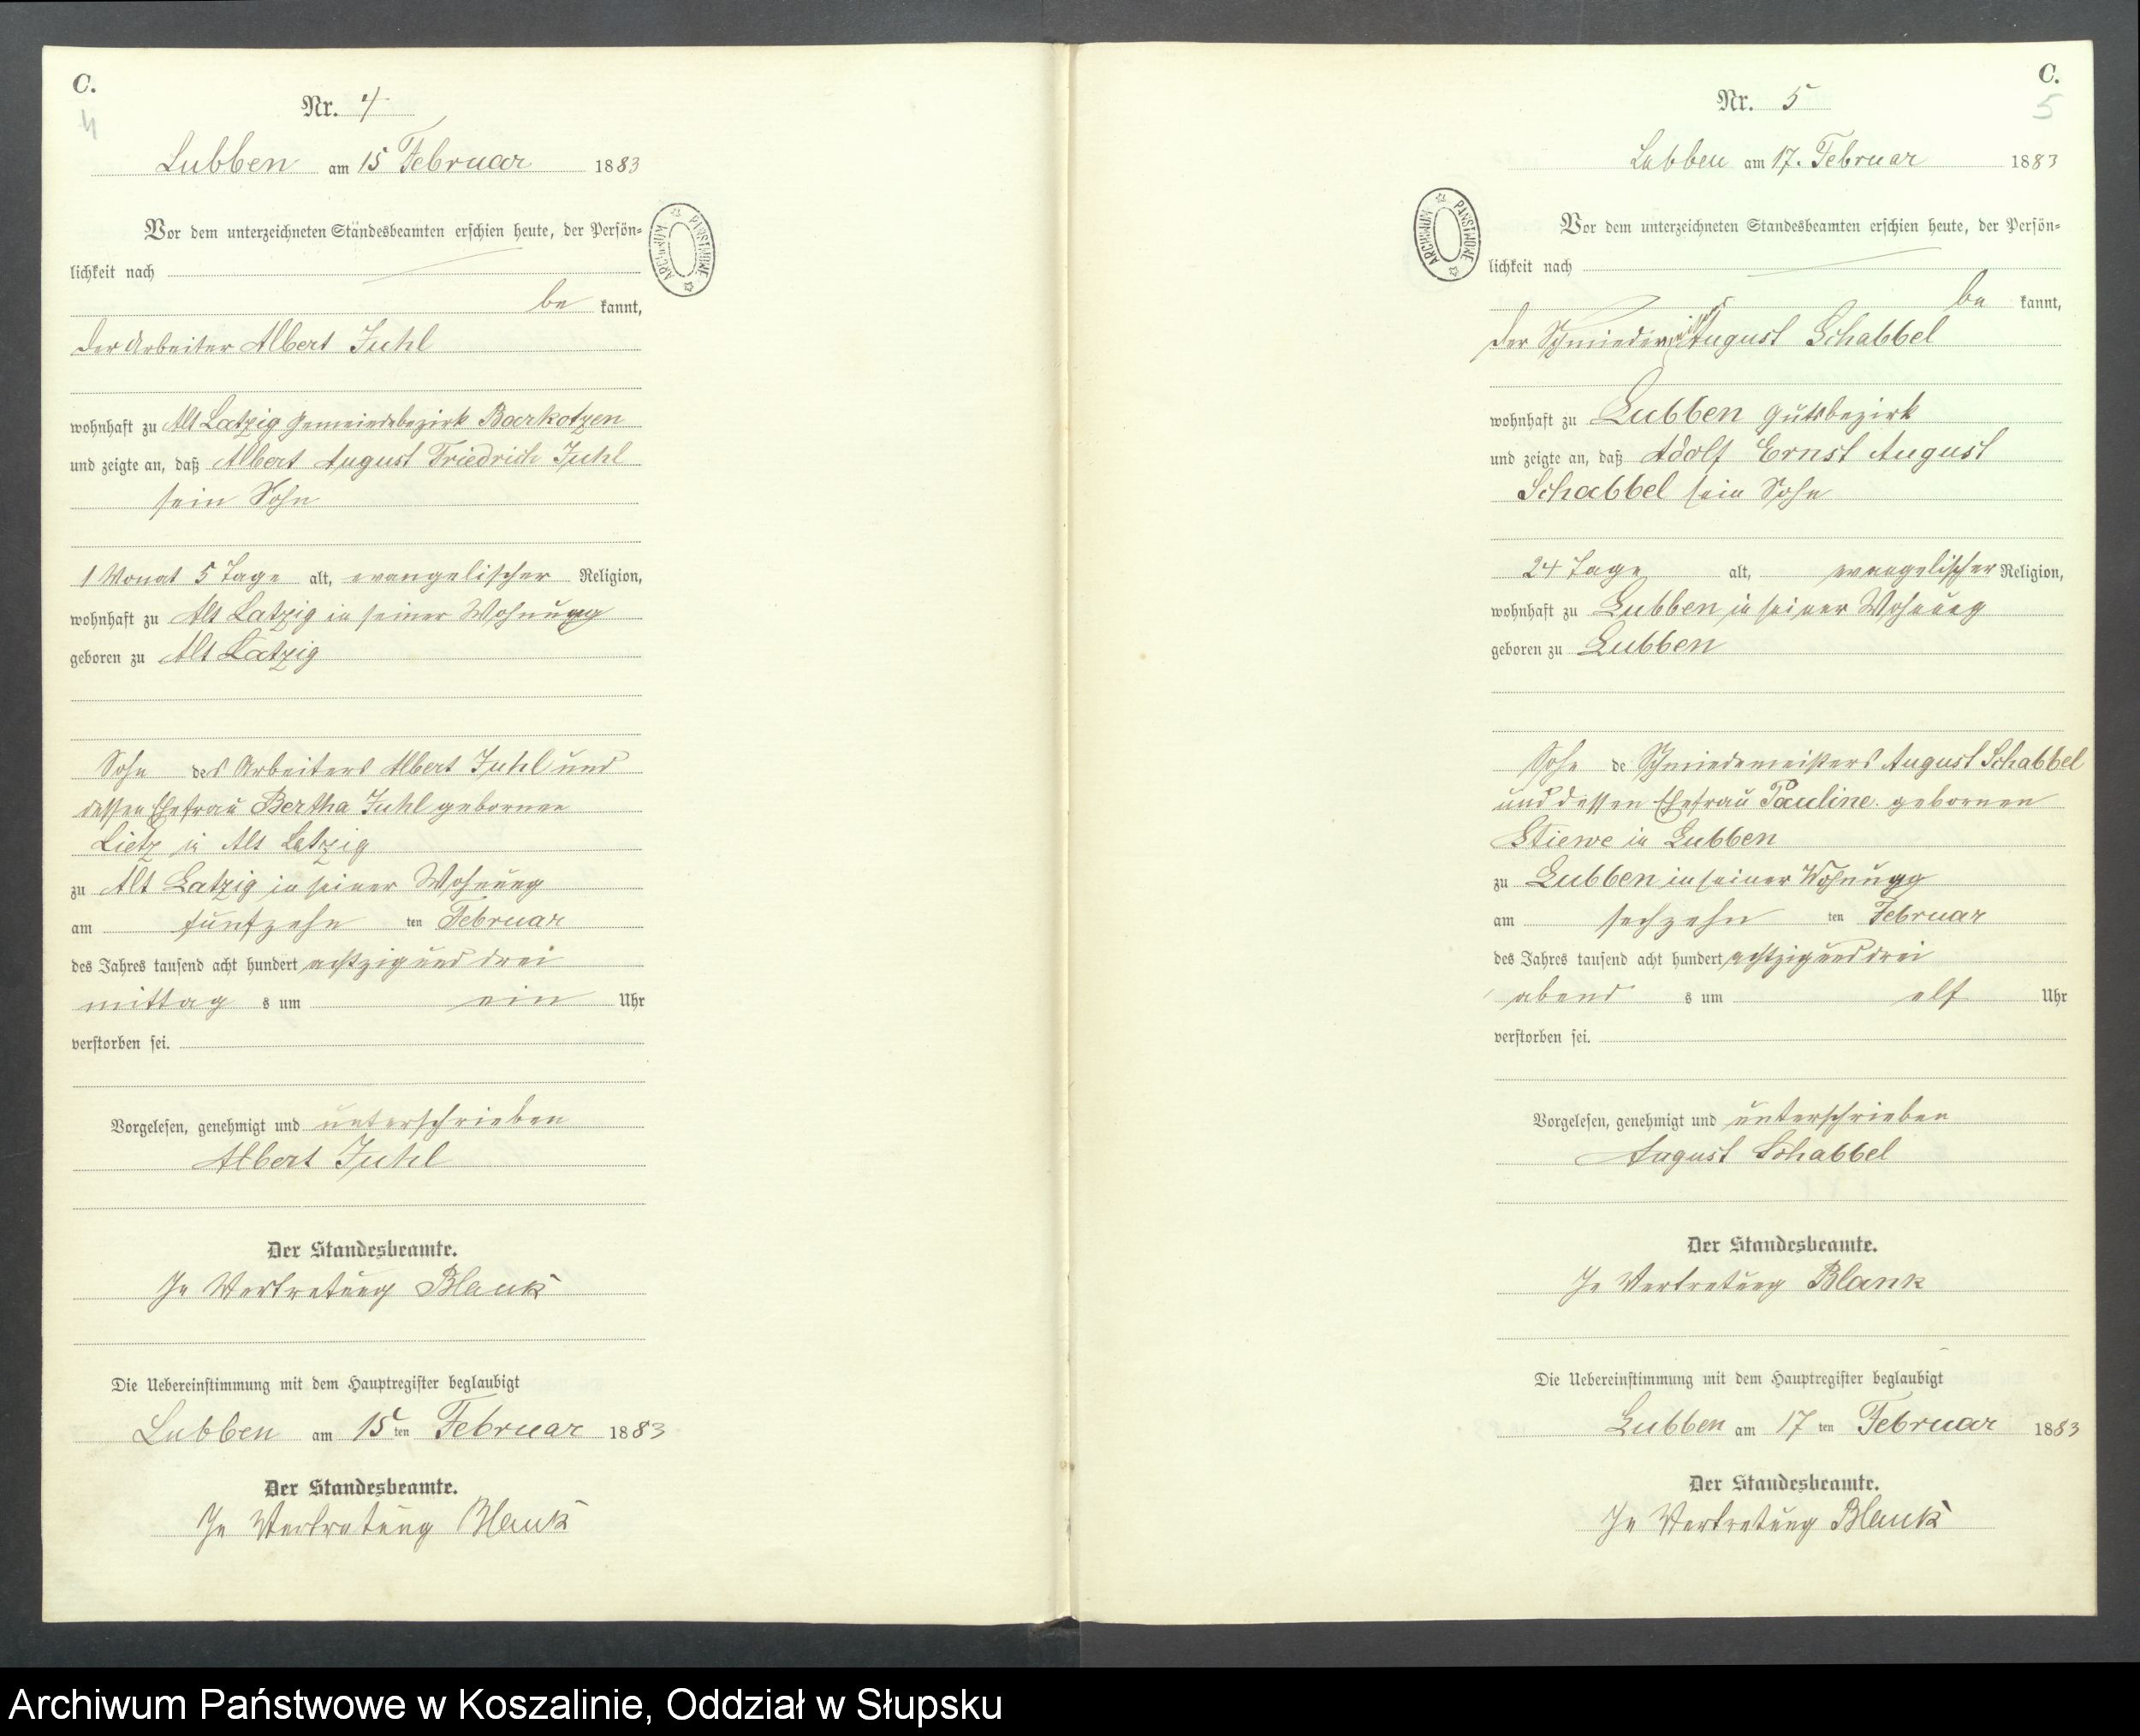 C.
4
Nr. 4
Lubben am 15 Februar 1883
Vor dem unterzeichneten Standesbeamten erschien heute, der Persön-
lichkeit nach
be kannt,
der Arbeiter Albert Juhl
wohnhaft zu Alt Latzig Gemeindebezirk Barkotzen
und zeigte an, daß Albert August Friedrich Juhl
sein Sohn
1 Monat 5 Tage alt, evangelischer Religion,
wohnhaft zu Alt Latzig in seiner Wohnung
geboren zu Alt Latzig
Sohn des Arbeiters Albert Juhl und
dessen Ehefrau Bertha Juhl gebornen
Lietz in Alt Latzig
zu Alt Latzig in seiner Wohnung
am funfzehn ten Februar
des Jahres tausend acht hundert achtzig und drei
mittag s um ein Uhr
verstorben sei.
Vorgelesen, genehmigt und unterschrieben
Albert Juhl
Der Standesbeamte.
In Vertretung Blank
Die Uebereinstimmung mit dem Hauptregister beglaubigt
Lubben am 15 ten Februar 1883
Der Standesbeamte.
In Vertretung Blank
ARCHIWUM PAŃSTWOWE
C.
5
Nr. 5
Lubben am 17. Februar 1883
Vor dem unterzeichneten Standesbeamten erschien heute, der Persön-
lichkeit nach
be kannt,
der Schmiedemeister August Schabbel
wohnhaft zu Lubben Gutsbezirk
und zeigte an, daß Adolf Ernst August
Schabbel sein Sohn
24 Tage alt, evangelischer Religion,
wohnhaft zu Lubben in seiner Wohnung
geboren zu Lubben
Sohn de Schmiedemeisters August Schabbel
und dessen Ehefrau Pauline gebornen
Stiewe in Lubben
zu Lubben in seiner Wohnung
am sechzehn ten Februar
des Jahres tausend acht hundert achtzig und drei
abend s um elf Uhr
verstorben sei.
Vorgelesen, genehmigt und unterschrieben
August Schabbel
Der Standesbeamte.
In Vertretung Blank
Die Uebereinstimmung mit dem Hauptregister beglaubigt
Lubben am 17 ten Februar 1883
Der Standesbeamte.
In Vertretung Blank
ARCHIWUM PAŃSTWOWE
Archiwum Państwowe w Koszalinie, Oddział w Słupsku